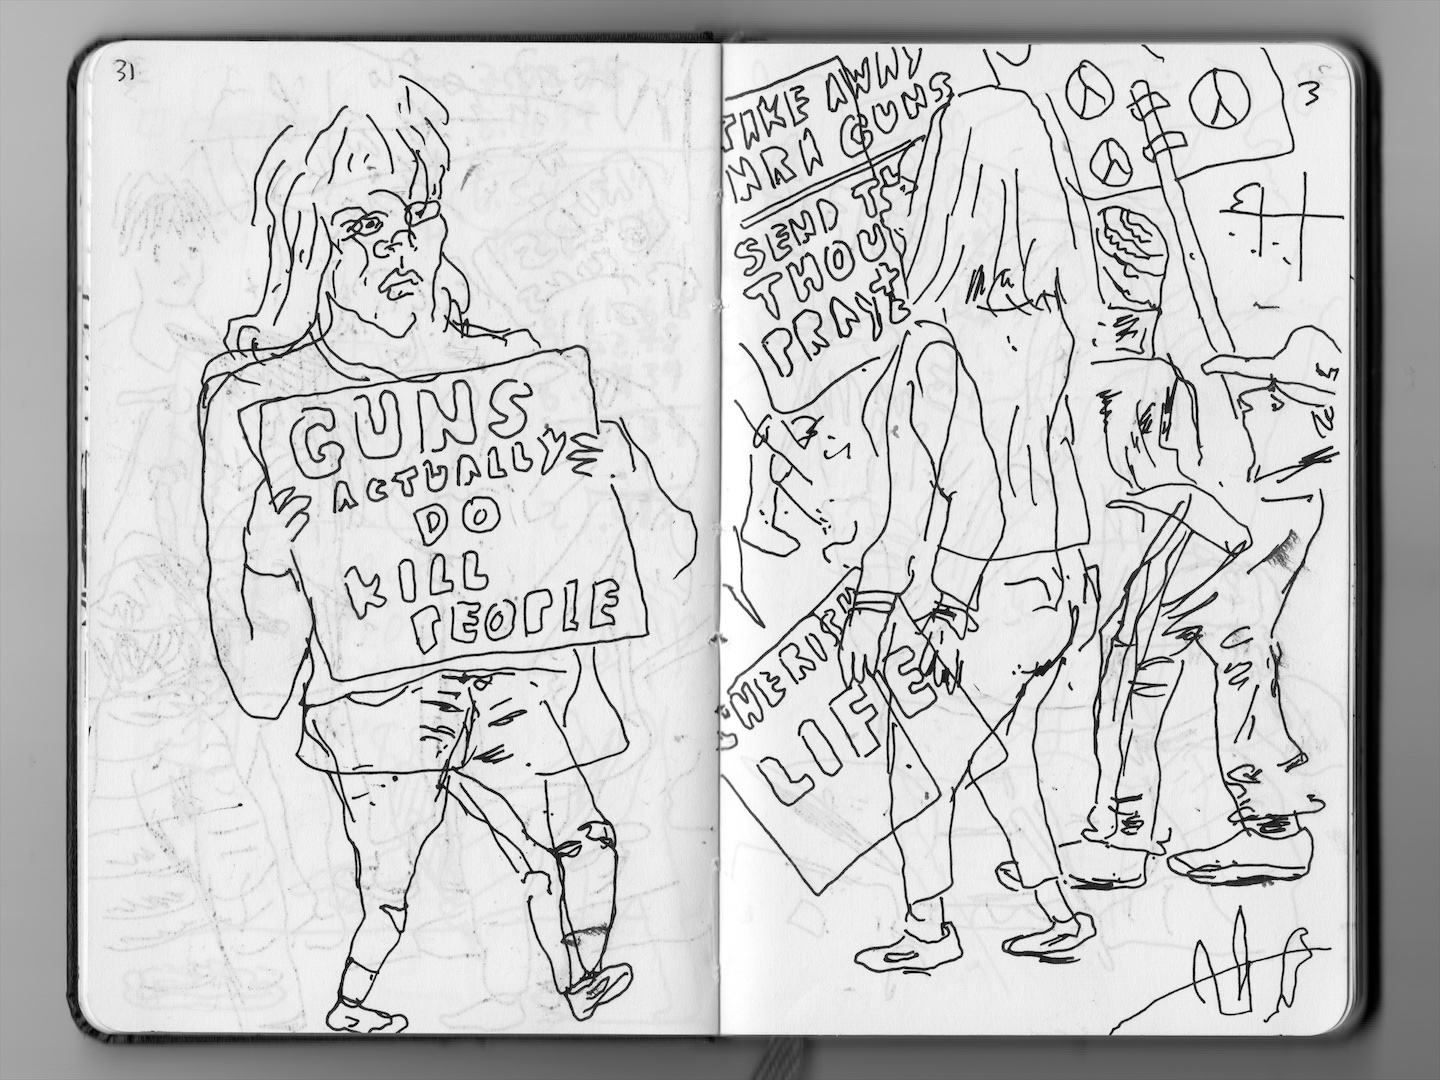 31
GUNS
ACTUALLY
DO
KILL
PEOPLE
TAKE AWAY
NRA GUNS
SEND
THOU
PRAYE
LIFE
3